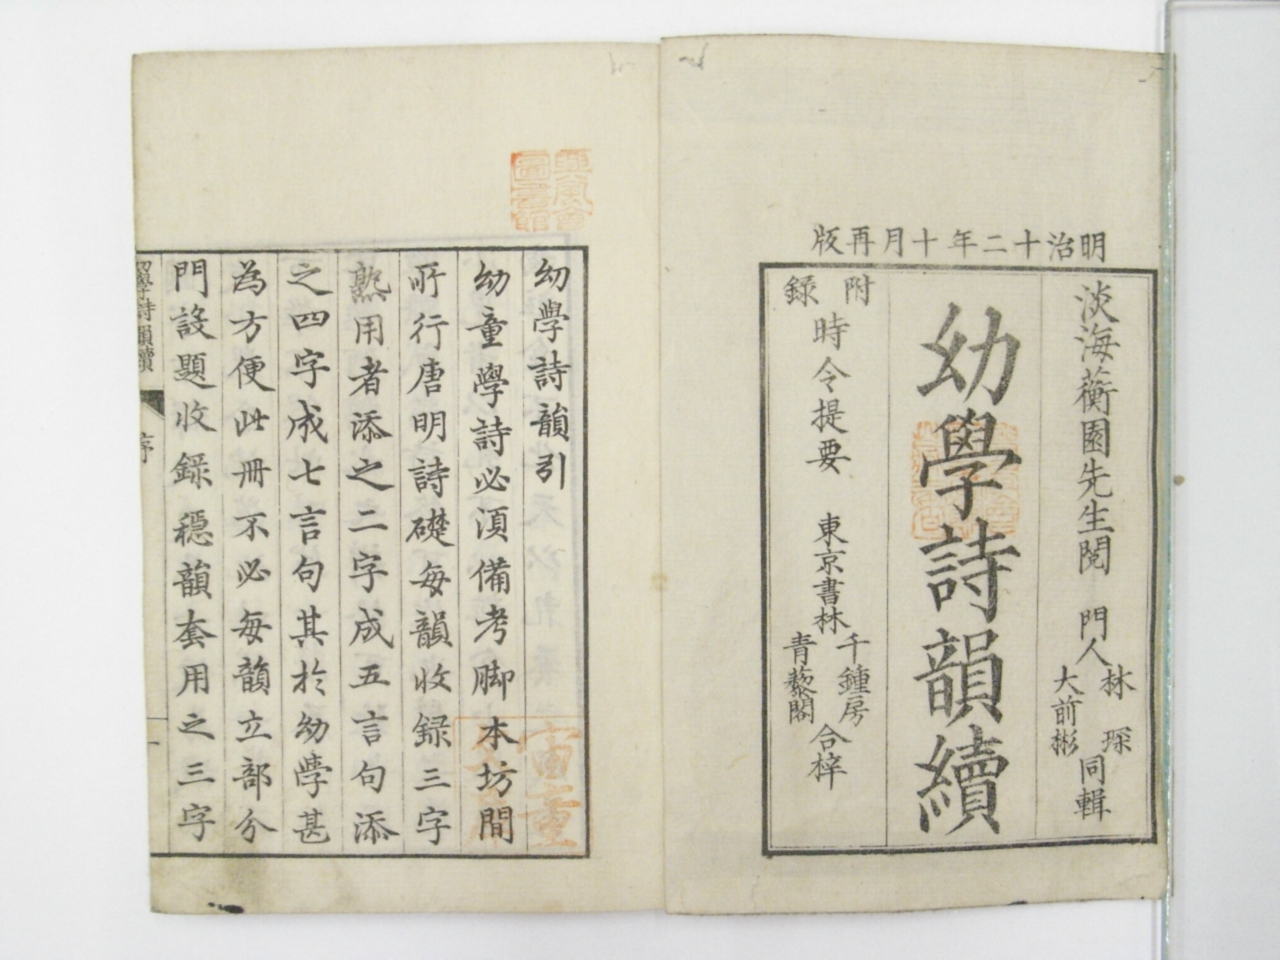 明治十二年十月再版
淡海蘅園先生閲 門人 林琛 大前彬 同輯
幼學詩韻續
附録 時令提要 東京書林 千鍾房 青藜閣 合梓
興風會
圖書館
幼學詩韻引
幼童學詩必須備考脚本坊間
所行唐明詩礎每韻收録三字
熟用者添之二字成五言句添
之四字成七言句其於幼學甚
為方便此冊不必每韻立部分
門設題收録穩韻套用之三字
幼學詩韻續
序
一